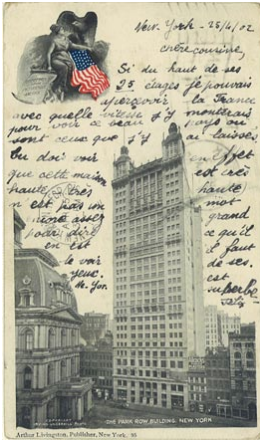 New-York - 25/4/02
chère couvrive,
Si du haut de ses
25 étages je pouvais
apercevoir la France
avec quelle vitesse j'y monterais
pour voir ce beau pays où
sont ceux que j'y ai laissés.
tu doi voir en effet
que cette maison est très
haute, très haute
n'est pas un mot
même assez grand
pour dire ce qu'il
en est il faut
le voir de ses.
yeux. est
superbe
THE PARK ROW BUILDING, NEW YORK
Arthur Livingston, Publisher, New York.